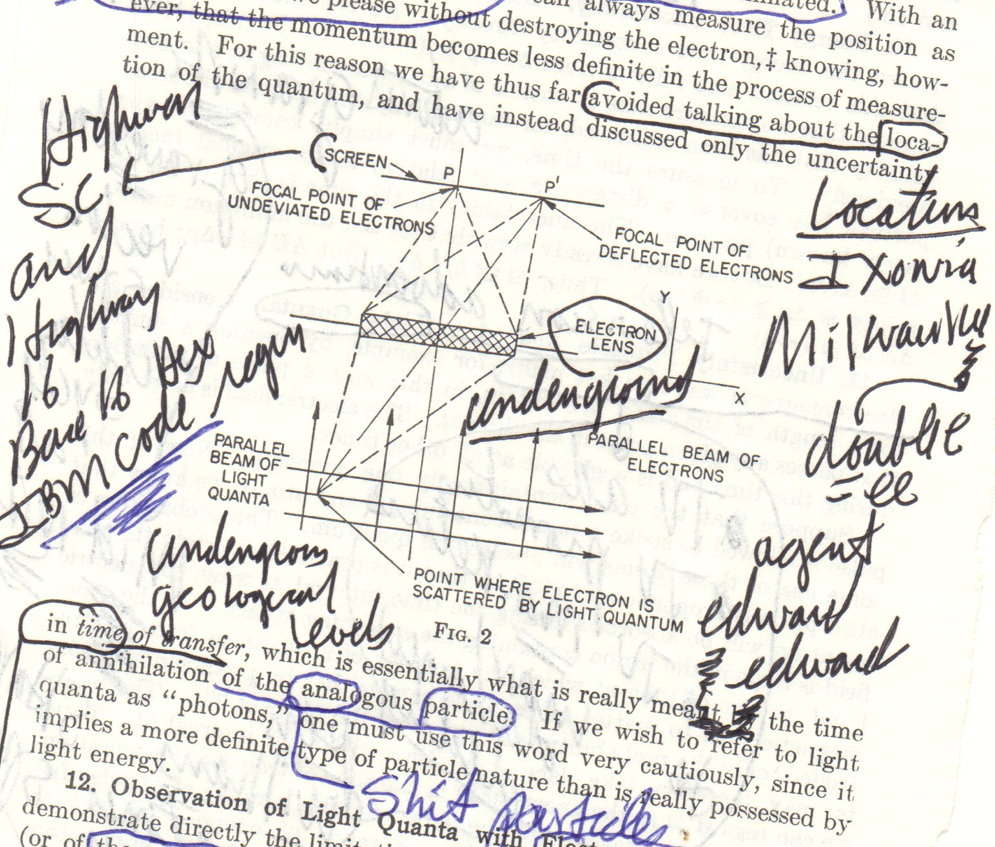 inated. With an
we please without destroying the electron,‡ knowing, how-
can always measure the position as
ever, that the momentum becomes less definite in the process of measure-
ment. For this reason we have thus far avoided talking about the loca-
tion of the quantum, and have instead discussed only the uncertainty
Highway
SC
and
Highway
16
Base 16 Hex
IBM Code
SCREEN
P
P'
FOCAL POINT OF
UNDEVIATED ELECTRONS
FOCAL POINT OF
DEFLECTED ELECTRONS
Y
ELECTRON
LENS
X
underground
PARALLEL
BEAM OF
LIGHT
QUANTA
PARALLEL BEAM OF
ELECTRONS
POINT WHERE ELECTRON IS
SCATTERED BY LIGHT QUANTUM
Locations
Ixonia
Milwaukee
double
= ee
agent
edward
edward
geological
levels
FIG. 2
in time of transfer, which is essentially what is really meant by the time
of annihilation of the analogous particle. If we wish to refer to light
quanta as “photons,” one must use this word very cautiously, since it
implies a more definite type of particle nature than is really possessed by
light energy.
Shit particles
12. Observation of Light Quanta with Elect
demonstrate directly the limit
(or of the